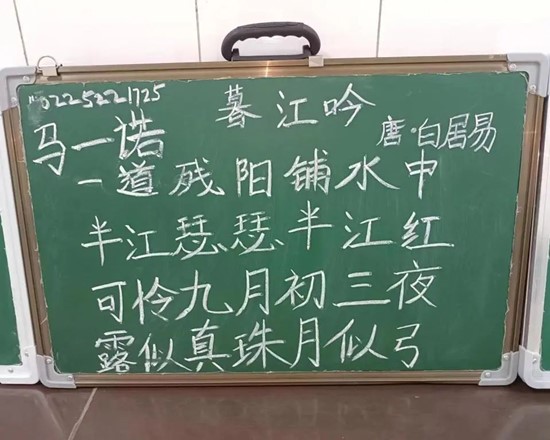 暮江吟
唐·白居易
马一诺
一道残阳铺水中
半江瑟瑟半江红
可怜九月初三夜
露似真珠月似弓